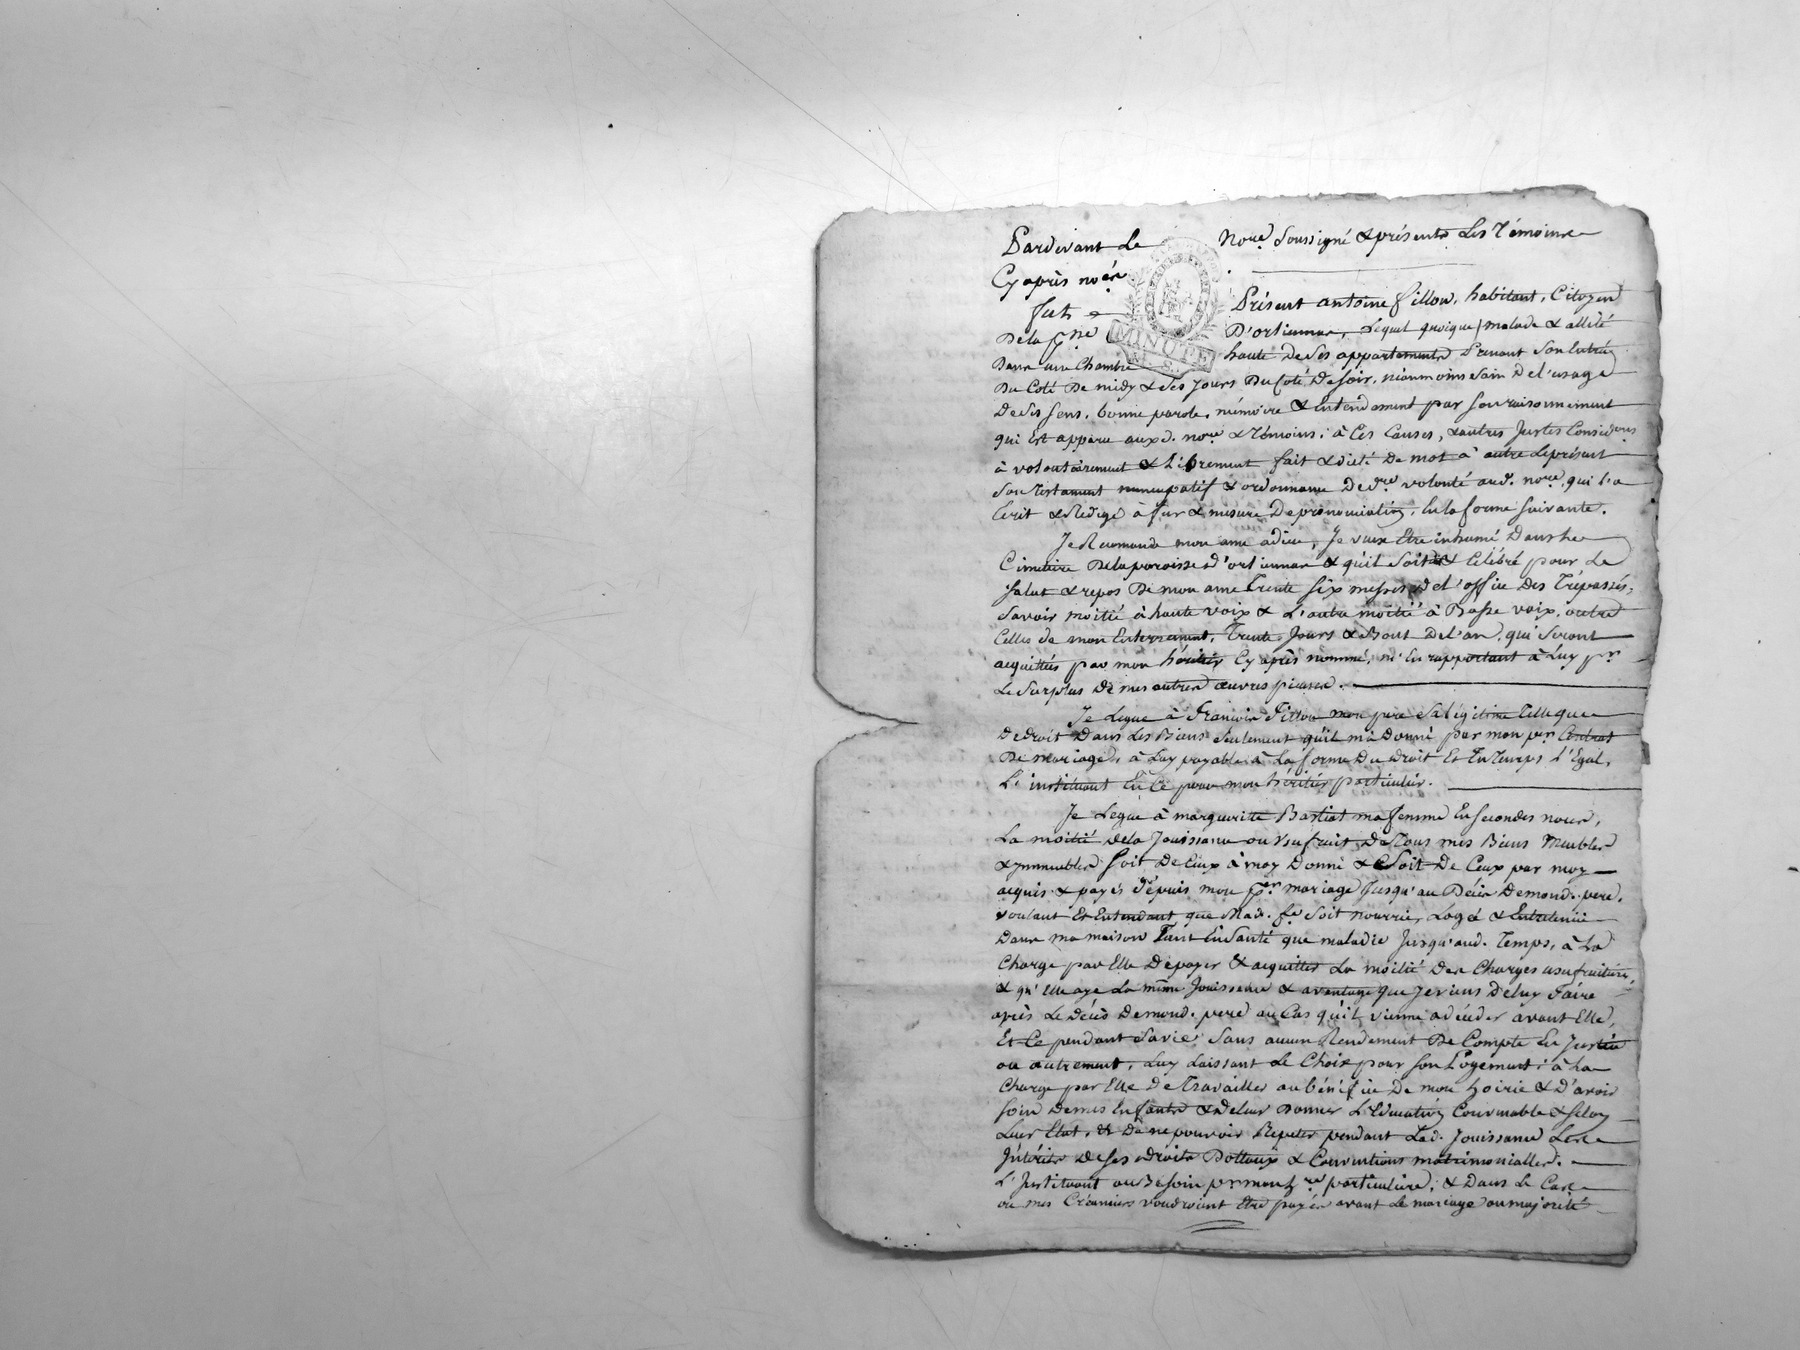 Pardevant Le Nore Soussigné & présents Les Témoins
Cy après noés
fut
Présent antoine fillon, habitant, Citoyen
De la D'orliennas, Lequel quoique malade & allité
Dans une Chambre haute de Ses appartements Prenant Son Entrée
Du Coté De midy & Ses Jours Du Coté De soir, néanmoins Sain De l'usage
De Ses Sens, bonne parole, mémoire & Entendement par Son raisonnement
qui Est apparu auxd. nore & Témoins; à Ces Causes, & autres Justes Considons
à volontairement & Librement fait & dicté De mot à autre Le présent
Son Testament nuncupatif & ordonnance De dre volonté aud. nore, qui l'a
Ecrit & Redigé à fur & mesure De prononciation, En la forme Suivante.
Je Recommande mon ame à dieu, Je veux Etre inhumé Dans Le
Cimetiere De la paroisse d'orliennas & qu'il Soit Célébré pour Le
Salut & repos De mon ame Trente Six messes De l'office Des Trépassés,
Savoir moitié à haute voix & L'autre moitié à Basse voix, outre
Celles de mon Enterrement, Trente Jours & Bout De l'an, qui Seront
acquittés par mon héritier Cy après nommé, m'En rapportant à Luy pr
Le Surplus De mes autres œuvres pieuses.
Je Legue à François Fillon mon pere Sa légitime Telle que
De droit Dans Les Biens Seulement qu'il m'a Donné par mon per Contrat
De mariage, à Luy payable à La forme Du droit Et En Temps L'Egal,
L'instituant En Ce pour mon héritier particulier.
Je Legue à marguerite Bastiat ma femme En Secondes noces,
La moitié De la Jouissance ou Usufruit De Tous mes Biens Meubles
& Immeubles Soit De Ceux à moy Donné & Soit De Ceux par moy
acquis & payés depuis mon per mariage Jusqu'au Décès De mond. pere,
voulant Et Entendant que Mad. fe Soit nourrie, Logé & Entretenüe
Dans ma maison Tant En Santé que maladie Jusqu'aud. Temps, à La
Charge par Elle De payer & acquitter La moitié Des Charges usufruitieres
& qu'Elle aye La même Jouissance & avantage que Je viens De luy Faire
après Le Décès De mond. pere au Cas qu'il vienne à décéder avant Elle,
Et Ce pendant Sa vie Sans aucun Rendement De Compte En Justice
ou autrement, Luy Laissant Le Choix pour Son Logement; à La
Charge par Elle De Travailler au bénéfice De mon hoirie & D'avoir
Soin De mes Enfants & De leur Donner L'Education Convenable & Selon
Leur Etat, & De ne pouvoir Repeter pendant Lad. Jouissance Les
Intérêts De Ses Droits Dottaux & Conventions matrimonialles.
L'Instituant au Besoin pr mon hre particuliere; & Dans Le Cas
ou mes Créanciers voudroient Etre payés avant Le mariage ou majorité
MINUTE